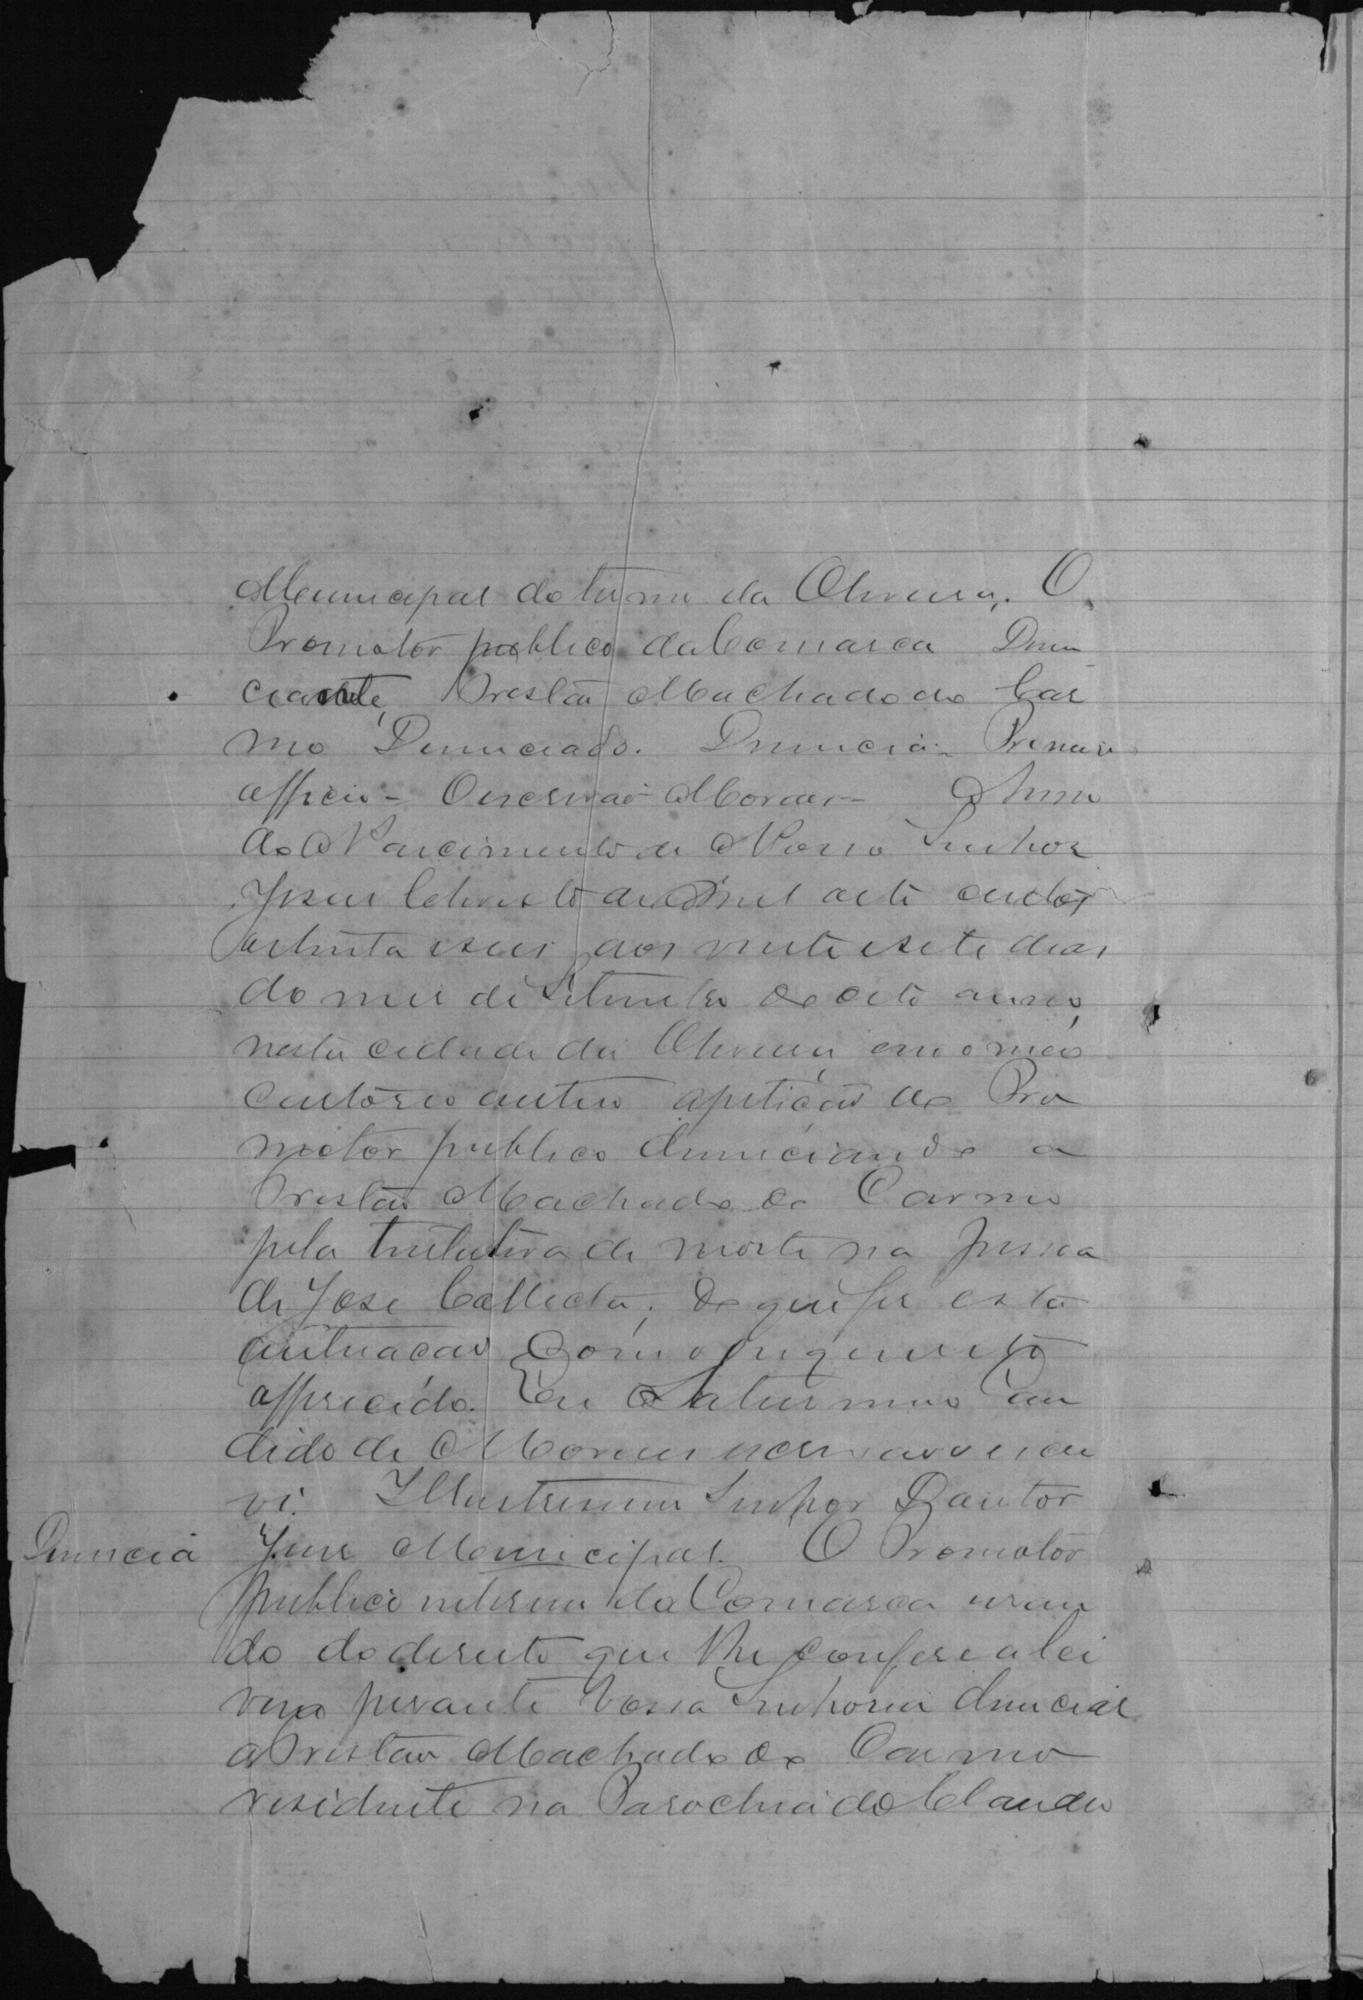 Municipal do termo da Oliveira. O
Promotor publico da Comarca Denun
ciante, Tristão Machado do Car
mo Denunciado. Denuncia - Primeiro
officio - Oescrivão Moraes - Anno
do Nascimento de Nosso Senhor
Jesus Christo de mil oito centos
oitenta e seis aos vinte e sete dias
do mez de Setembro do dito anno,
nesta cidade da Oliveira, em o meo
cartorio autuo a petição do Pro
motor publico denunciando a
Tristão Machado do Carmo
pela tentativa de morte na pessoa
de Jose Calleita, do que fiz esta
autuacão
offrecido. Eu Saturnino Can
dido de Moraes escrivão o escre
vi. Illustrissimo Senhor Doutor
Denuncia Juiz Municipal. O Promotor
publico interino da Comarca usan
do do direito que lhe confere a lei
vem perante Vossa Senhoria denunciar
a Tristão Machado do Carmo
residente na Parochia do Claudio